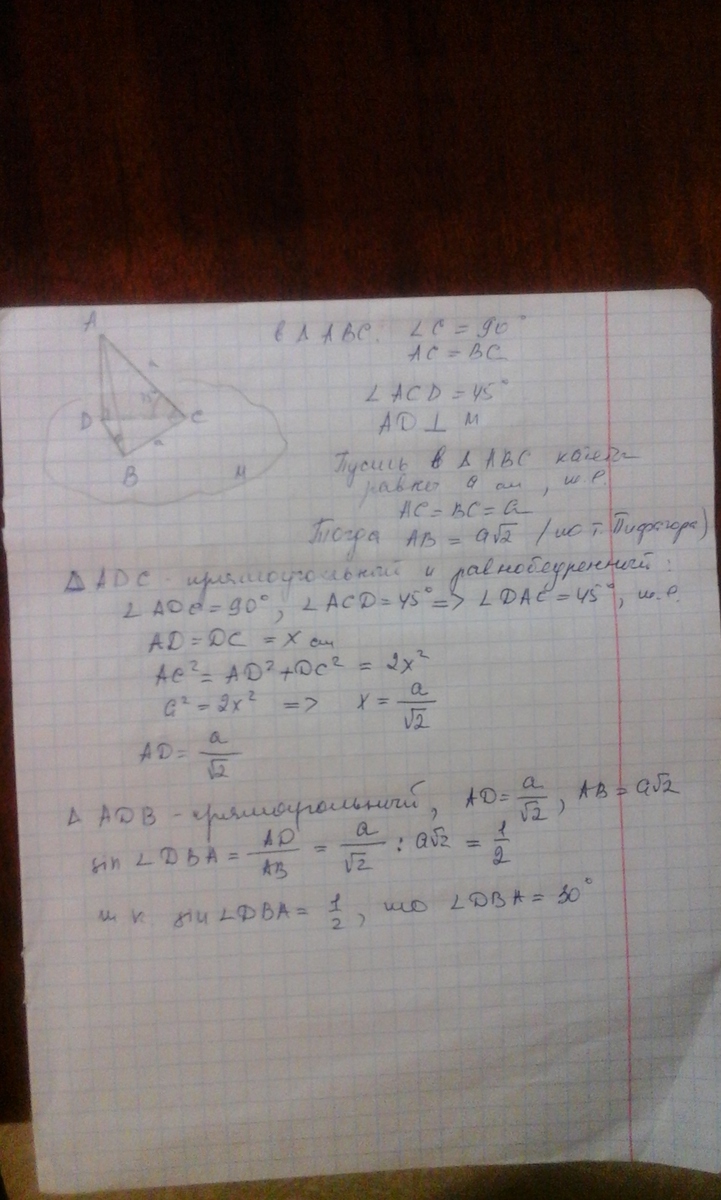 A
D
C
B
M
a
a
45°
в Δ ABC: ∠C = 90°
AC = BC
∠ACD = 45°
AD ⊥ M
Пусть в Δ ABC катеты
равны a см, т.е.
AC = BC = a
Тогда AB = a√2 (по т. Пифагора)
Δ ADC - прямоугольный и равнобедренный:
∠ADC = 90°, ∠ACD = 45° => ∠DAC = 45°, т.е.
AD = DC = x см
AC² = AD² + DC² = 2x²
a² = 2x² => x = a/√2
AD = a/√2
Δ ADB - прямоугольный, AD = a/√2, AB = a√2
sin ∠DBA = AD/AB = a/√2 : a√2 = 1/2
т к sin ∠DBA = 1/2, то ∠DBA = 30°